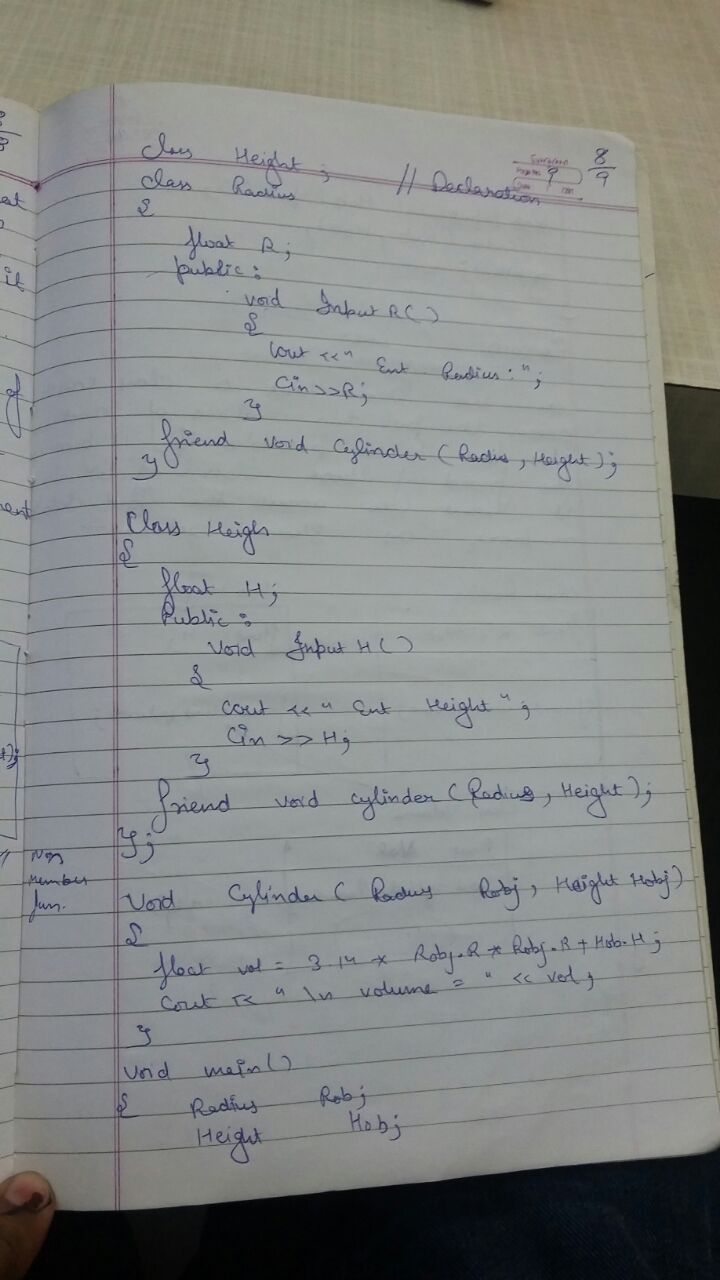 8/9
class Height ; // Declaration
class Radius
{
float R;
public:
void Input R()
{
cout << " Ent Radius: ";
cin>>R;
}
friend void Cylinder (Radius, Height);
}
Class Heigh
{
float H;
Public:
void Input H()
{
cout << " Ent Height ";
Cin >> H;
}
friend void cylinder (Radius, Height);
};
Non
member
fun.
void Cylinder ( Radius Robj, Height Hobj)
{
float vol = 3.14 * Robj.R * Robj.R + Hob.H;
Cout << " \n volume = " << vol;
}
void main()
{ Radius Rob;
Height Hob;